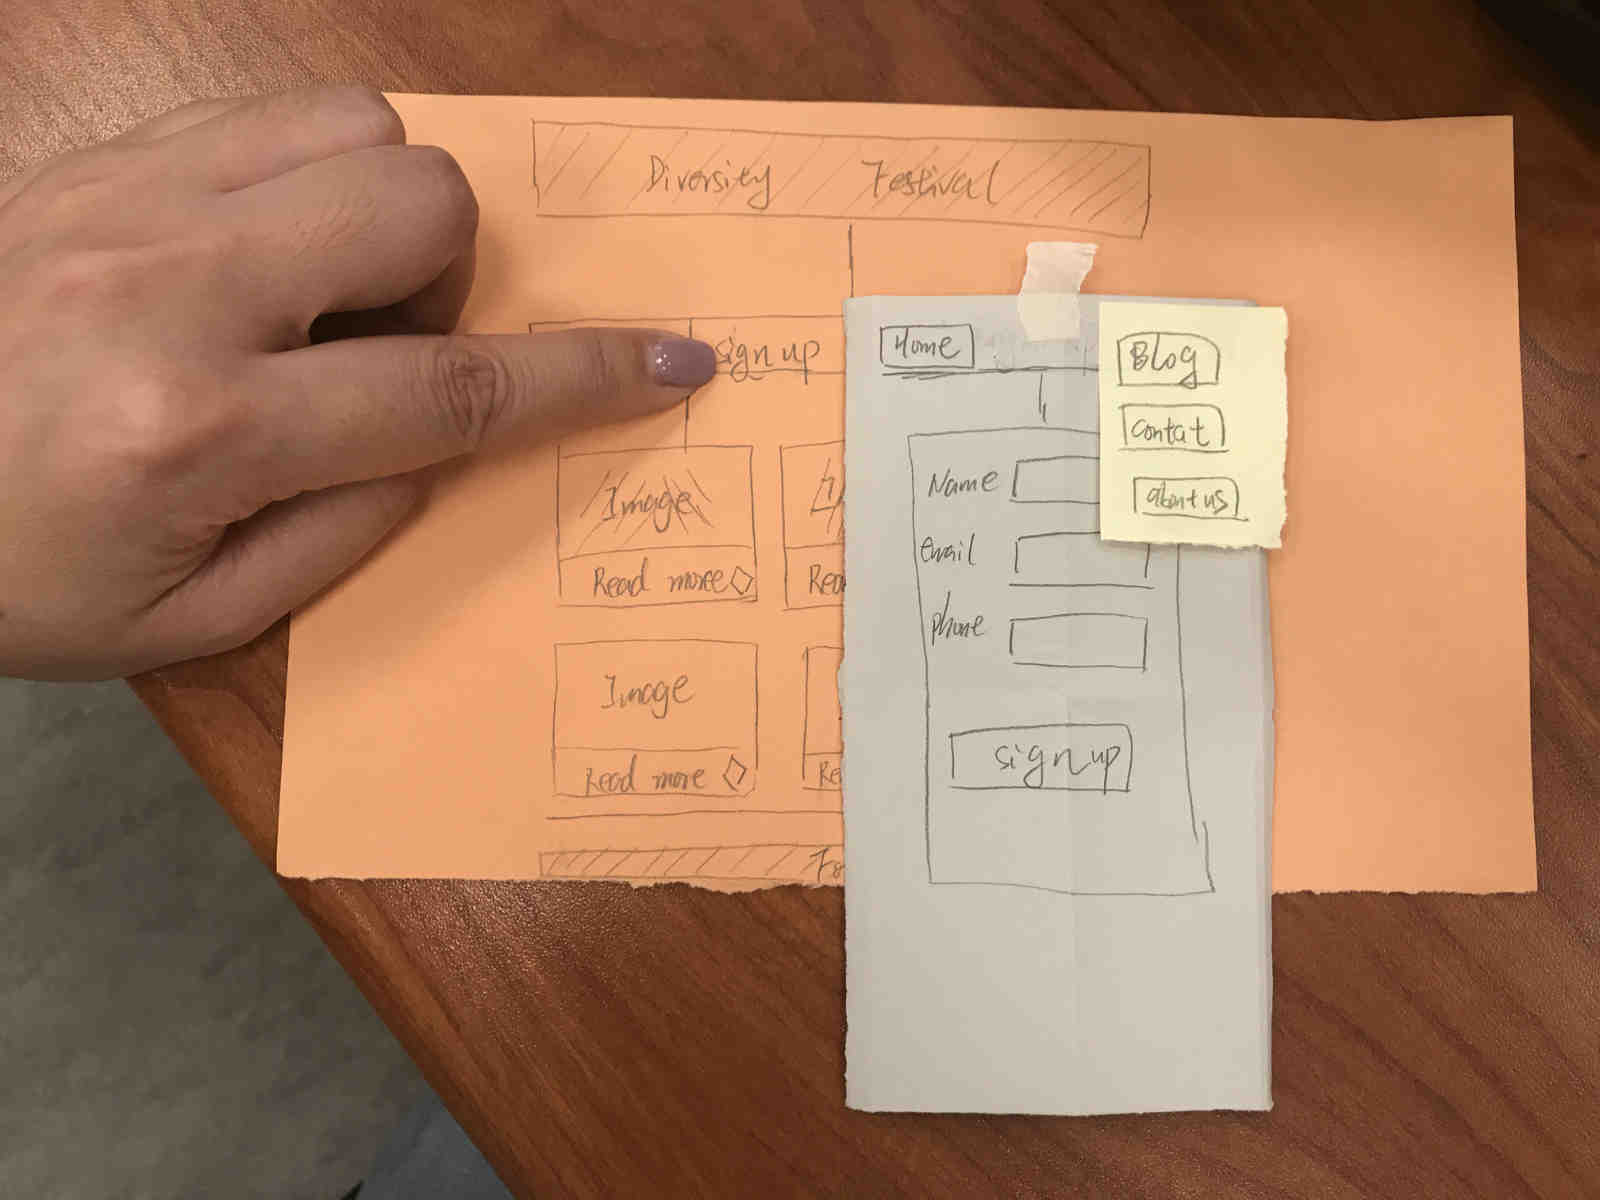 Diversity Festival
sign up
Image
Read more
Image
Read more
Rea
Re
Fo
Home
Name
Email
Phone
sign up
Blog
Contat
about us